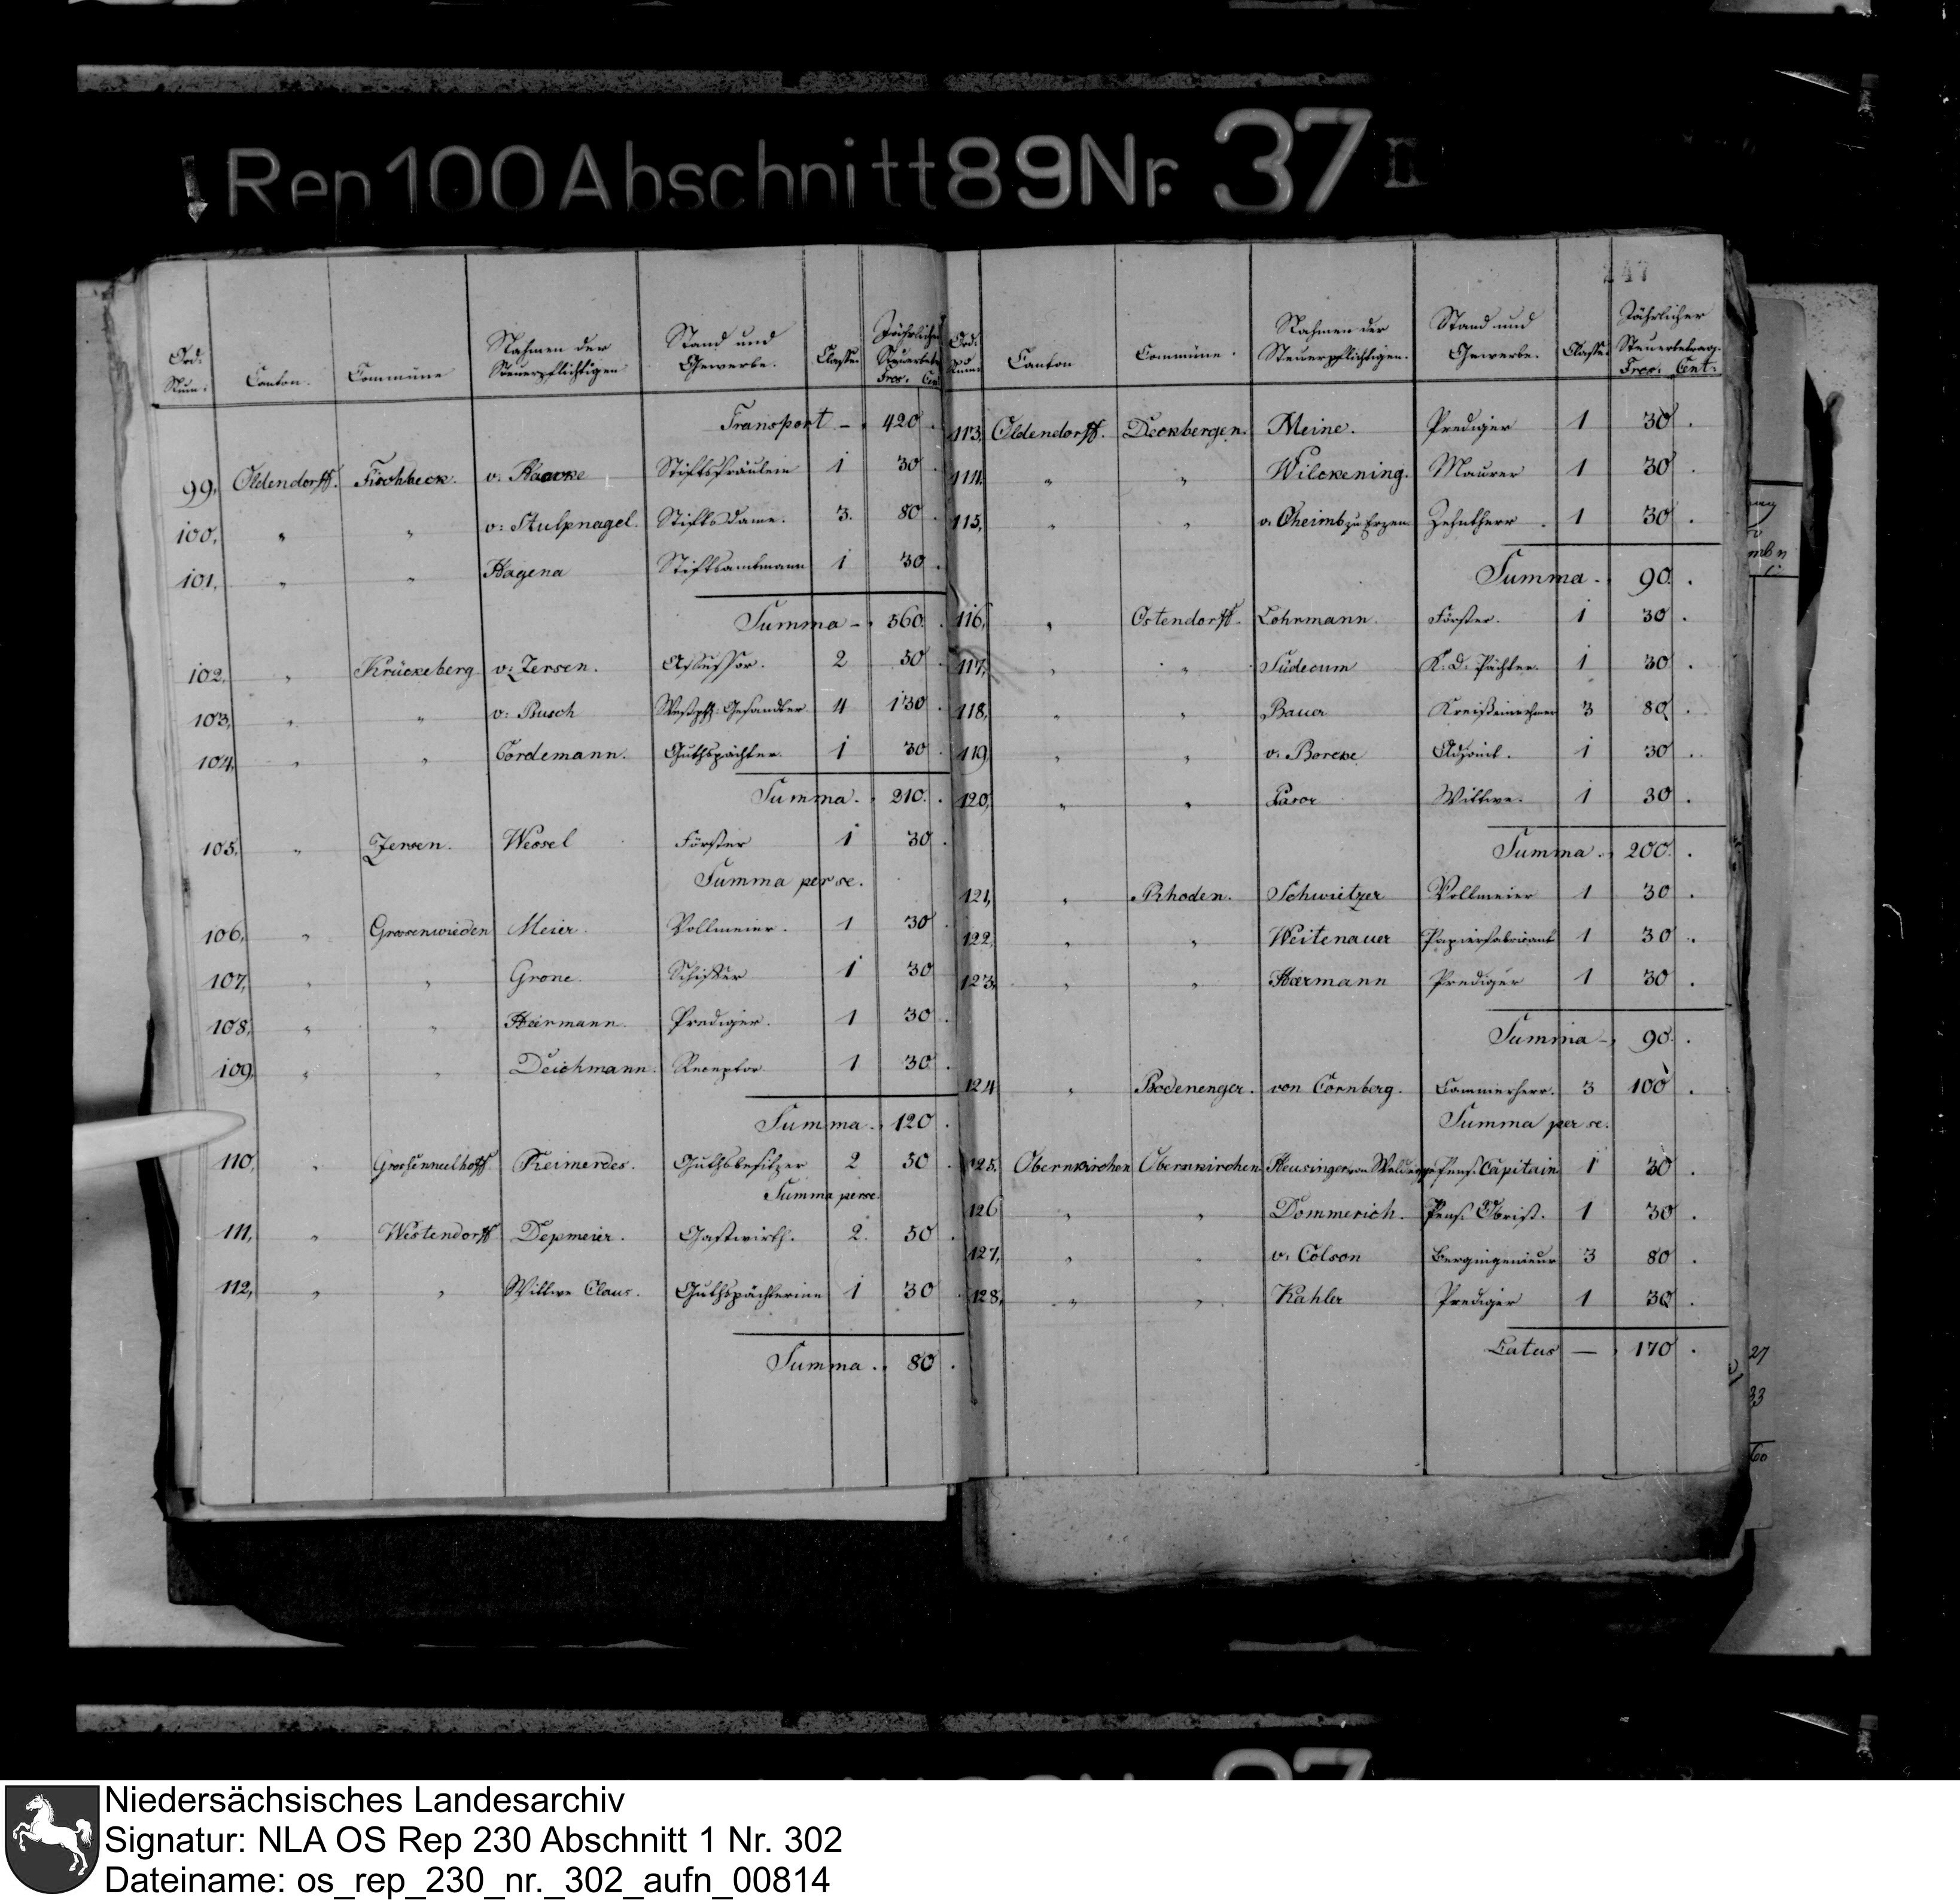 Rep 100 Abschnitt 89 Nr. 37 II
Ord. Num. Canton. Commüne Nahmen der Steuerpflichtigen Stand und Gewerbe. Classe. Jährlicher Steuerbetrag Frcs. Cent
Transport – 420 .
99, Oldendorff. Fischbeck. v. Haacke Stiftsfräulein 1 30 .
100, " " v: Stulpnagel. Stiftsdame. 3. 80 .
101, " " Hagena Stiftsamtmann 1 30 .
Summa – 560. .
102, " Krückeberg v: Zersen. Assessor. 2 50 .
103, " " v. Busch Westph: Gesandter 4 130 .
104, " " Cordemann. Guthspächter. 1 30 .
Summa. 210. .
105, " Zersen. Wessel Förster 1 30 .
Summa per se.
106, " Grossenwieden Meier. Vollmeier. 1 30 .
107, " " Grone. Schiffer 1 30
108, " " Heermann. Prediger. 1 30 .
109, " " Deichmann. Receptor 1 30 .
Summa. 120 .
110, " Reimerdes. Guthsbesitzer 2 50 .
Summa per se.
111, " Westendorff Depmeier. Gastwirth. 2. 50 .
112, " " Wittwe Claus. Guthspächterinn 1 30 .
Summa. 80 .
247
Ord. Num. Canton Commüne. Nahmen der Steuerpflichtigen. Stand und Gewerbe. Classe. Jährlicher Steuerbetrag. Frcs. Cent.
113, Oldendorff. Deckbergen. Meine. Prediger 1 30 .
114, " " Wilckening. Maurer 1 30 .
115, " " v. Oheimb zu Erzen Zehntherr. 1 30 .
Summa. 90. .
116, " Ostendorff. Lohrmann. Förster. 1 30 .
117, " " Südecum K. D. Pächter. 1 30 .
118, " " Bauer Kreißeinnehmer 3 80 .
119, " " v. Borcke Adjoint. 1 30 .
120, " " Wittwe. 1 30 .
Summa. 200. .
121, " Rhoden. Schwietzer Vollmeier 1 30 .
122, " " Weitenauer Papierfabricant 1 30 .
123, " " Heermann Prediger 1 30 .
Summa – 90. .
124 " Bodenenger. von Cornberg. Cammerherr. 3 100 .
Summa per se.
125. Obernkirchen Obernkirchen Heusinger von Waldegge Pens. Capitain 1 30 .
126 " " Dommerich. Pens. Obrist. 1 30 .
127, " " v. Colson Bergingenieur 3 80 .
128, " " Kahler Prediger 1 30 .
Latus – 170 .
27
33
60
Niedersächsisches Landesarchiv
Signatur: NLA OS Rep 230 Abschnitt 1 Nr. 302
Dateiname: os_rep_230_nr._302_aufn_00814